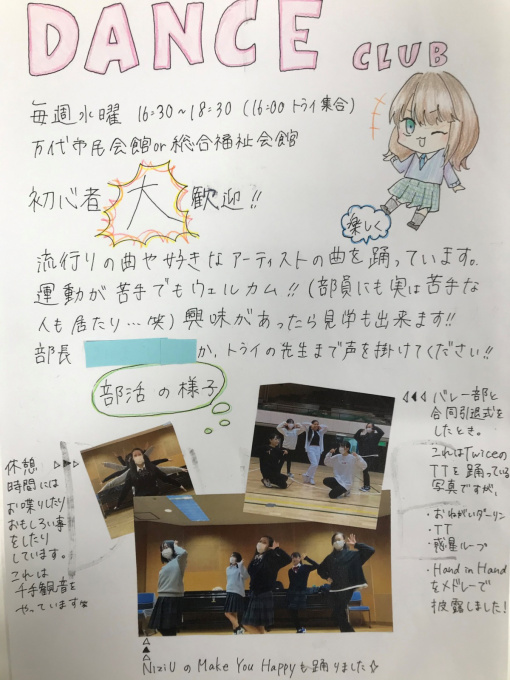 DANCE CLUB
毎週水曜 16:30~18:30 (16:00 トライ集合)
万代市民会館or総合福祉会館
初心者 大 歓迎!!
楽しく
流行りの曲や好きなアーティストの曲を踊っています。
運動が苦手でもウェルカム!! (部員にも実は苦手な
人も居たり…笑) 興味があったら見学も出来ます!!
部長 か、トライの先生まで声を掛けてください!!
部活の様子
バレー部と
合同引退式を
したとき。
これはTwiceの
TTを踊っている
写真ですが、
・おねがいダーリン
・TT
・惑星ループ
・Hand in Hand
をメドレーで
披露しました!
休憩
時間には
お喋りしたり
おもしろい事
をしたり
しています。
これは
千手観音を
やっています笑
NiziU の Make You Happyも踊りました☆